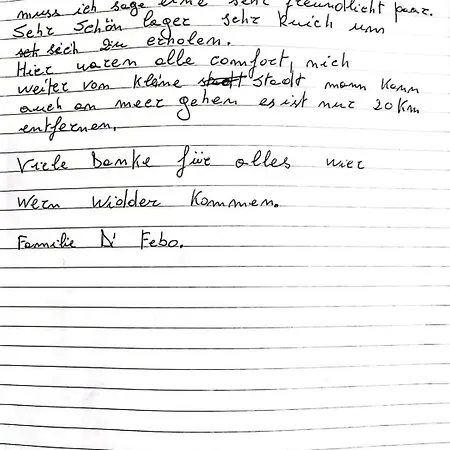 muss ich sage eine sehr freundlicht paar.
Sehr Schön lager sehr Ruich um
sich zu erholen.
Hier waren alle comfort, nich
weiter von kleine Stadt mann kann
auch an meer gehen es ist nur 20 Km
entfernen.
Viele Danke für alles wir
wern widder kommen.
Familie D' Febo.